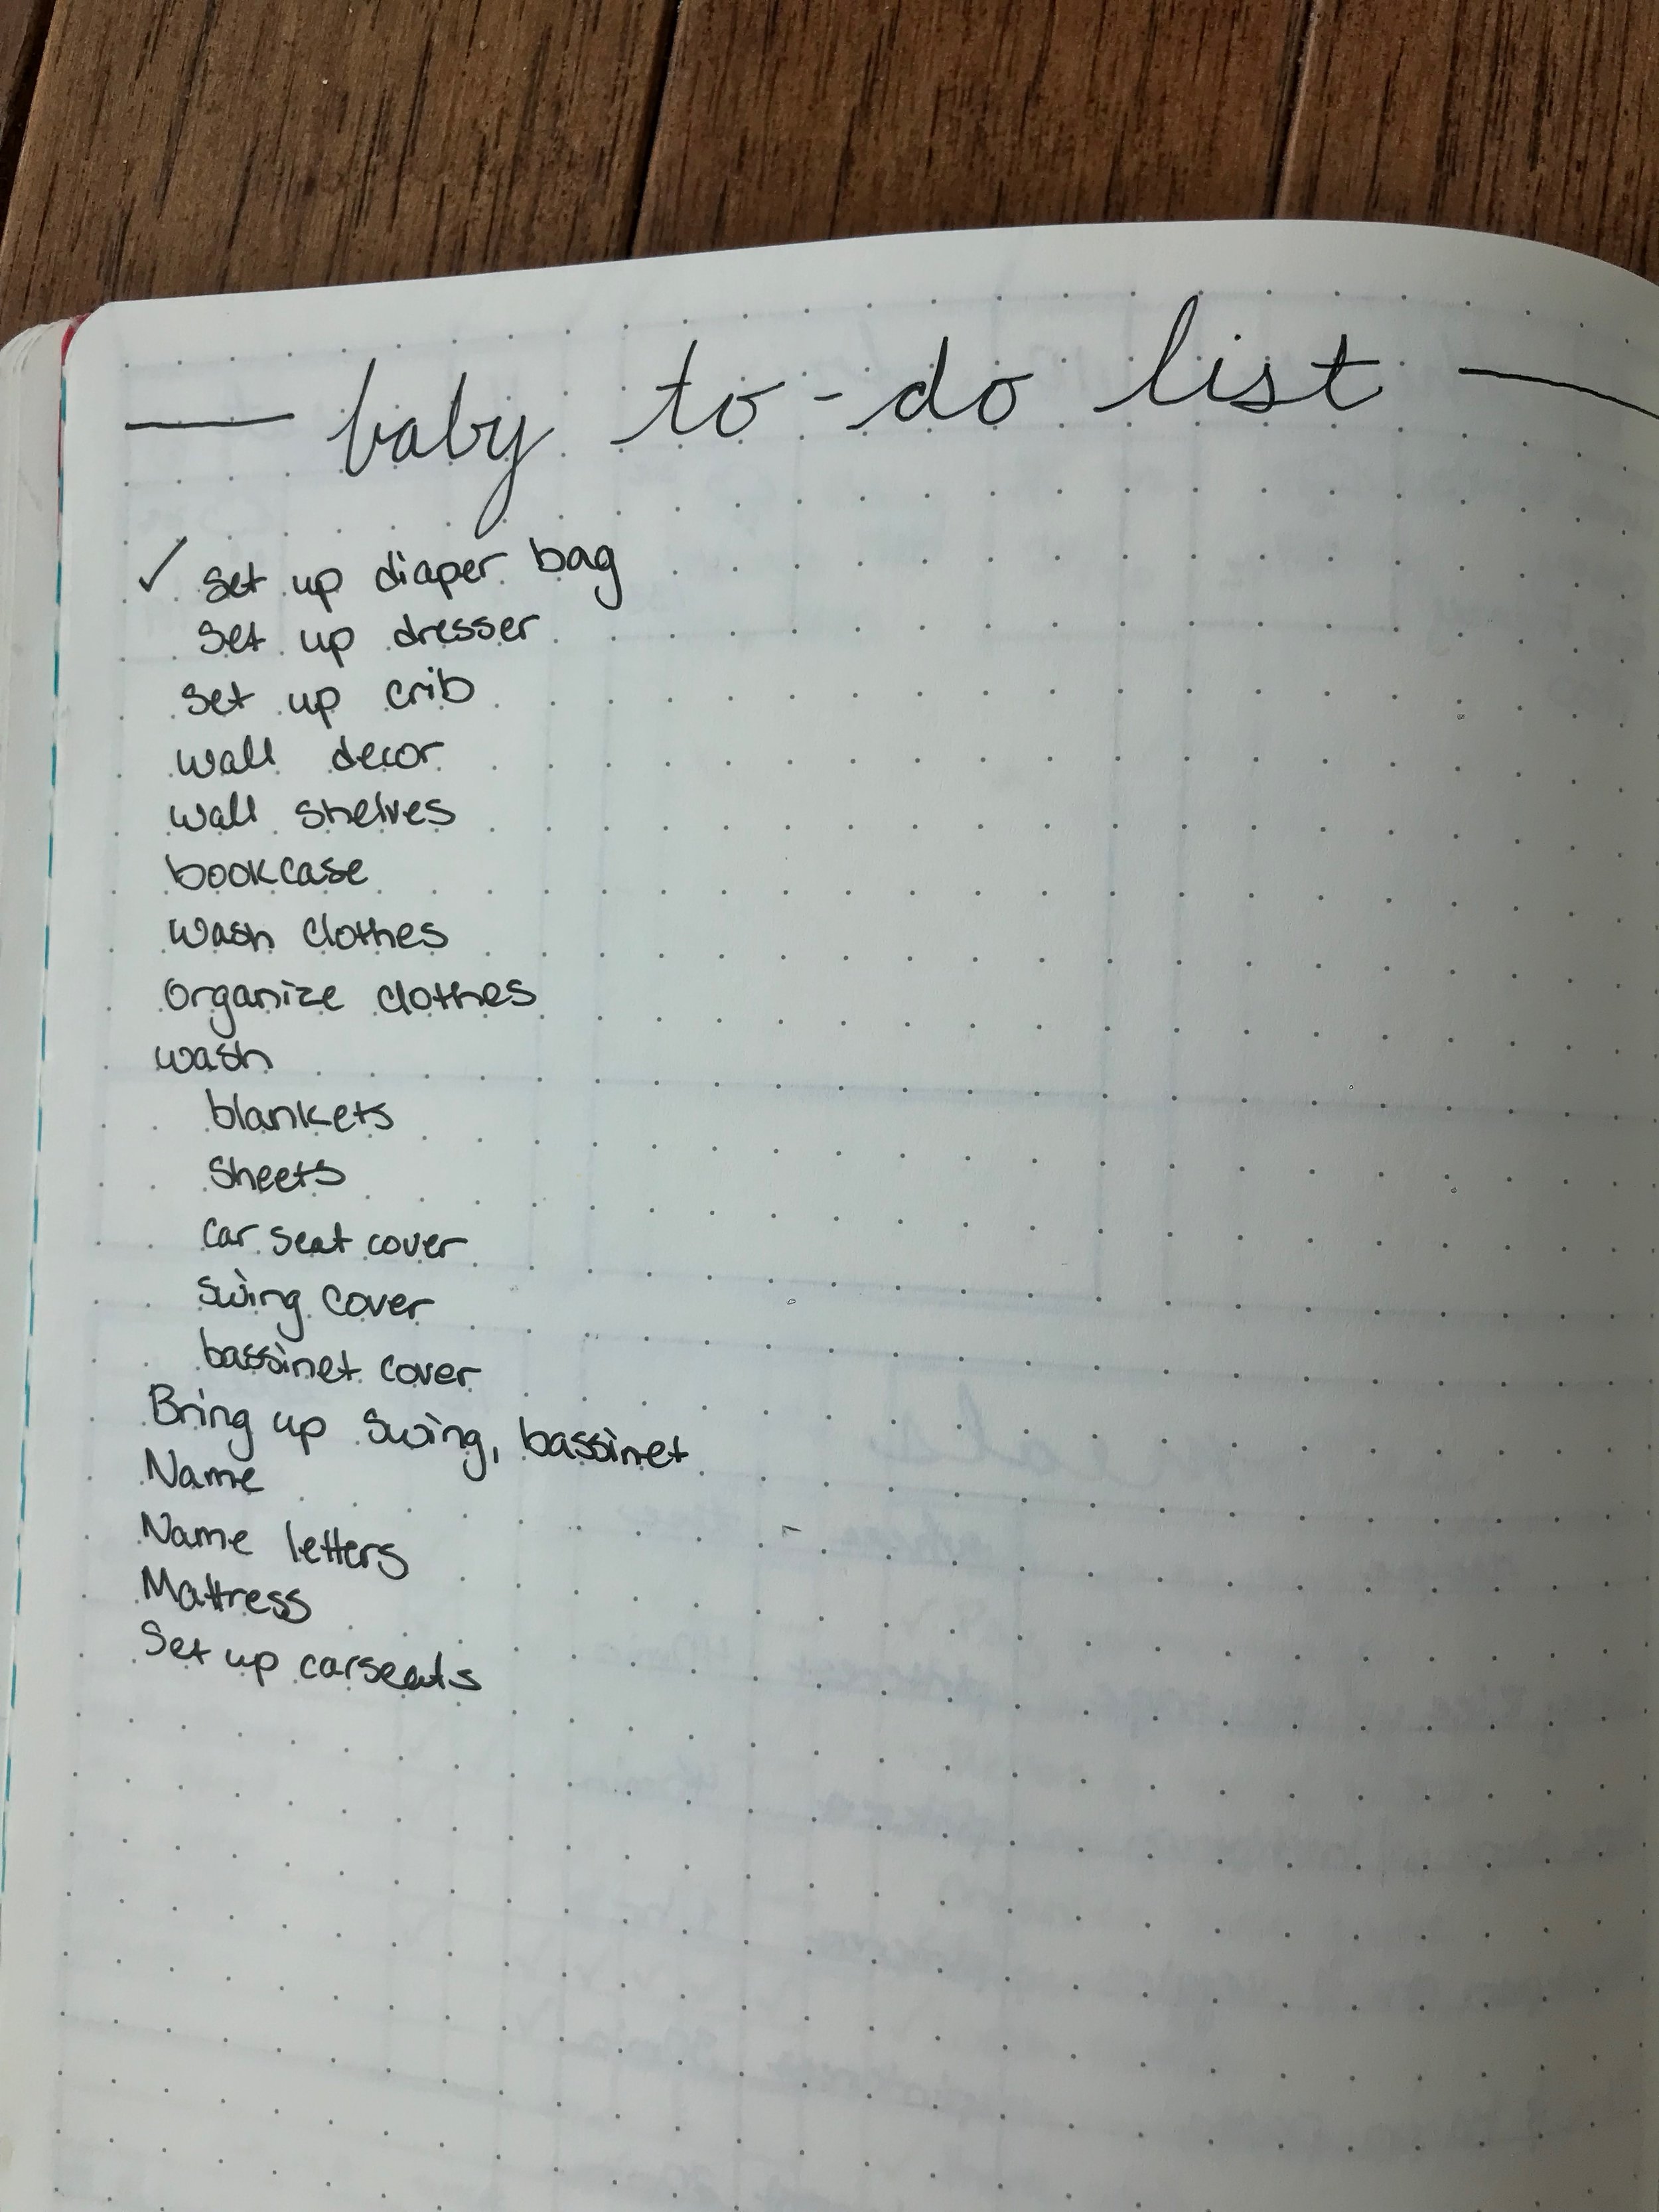 — baby to-do list —
✓ Set up diaper bag
Set up dresser
Set up crib
wall decor
wall shelves
bookcase
Wash clothes
Organize clothes
wash
blankets
Sheets
Car seat cover
Swing cover
bassinet cover
Bring up swing, bassinet
Name
Name letters
Mattress
Set up carseats